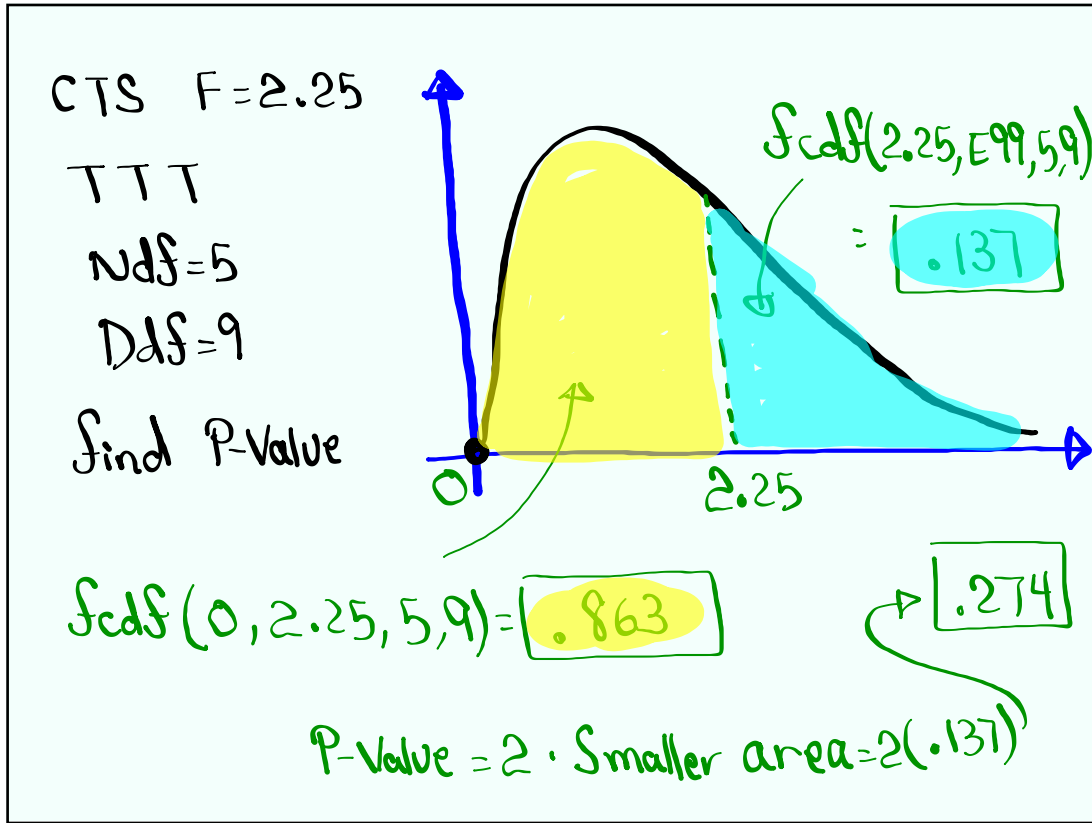 CTS F=2.25
TTT
Ndf=5
Ddf=9
find P-Value
fcdf(2.25,E99,5,9)
= .137
0
2.25
fcdf(0,2.25,5,9)= .863
.274
P-Value = 2 · Smaller area=2(.137)